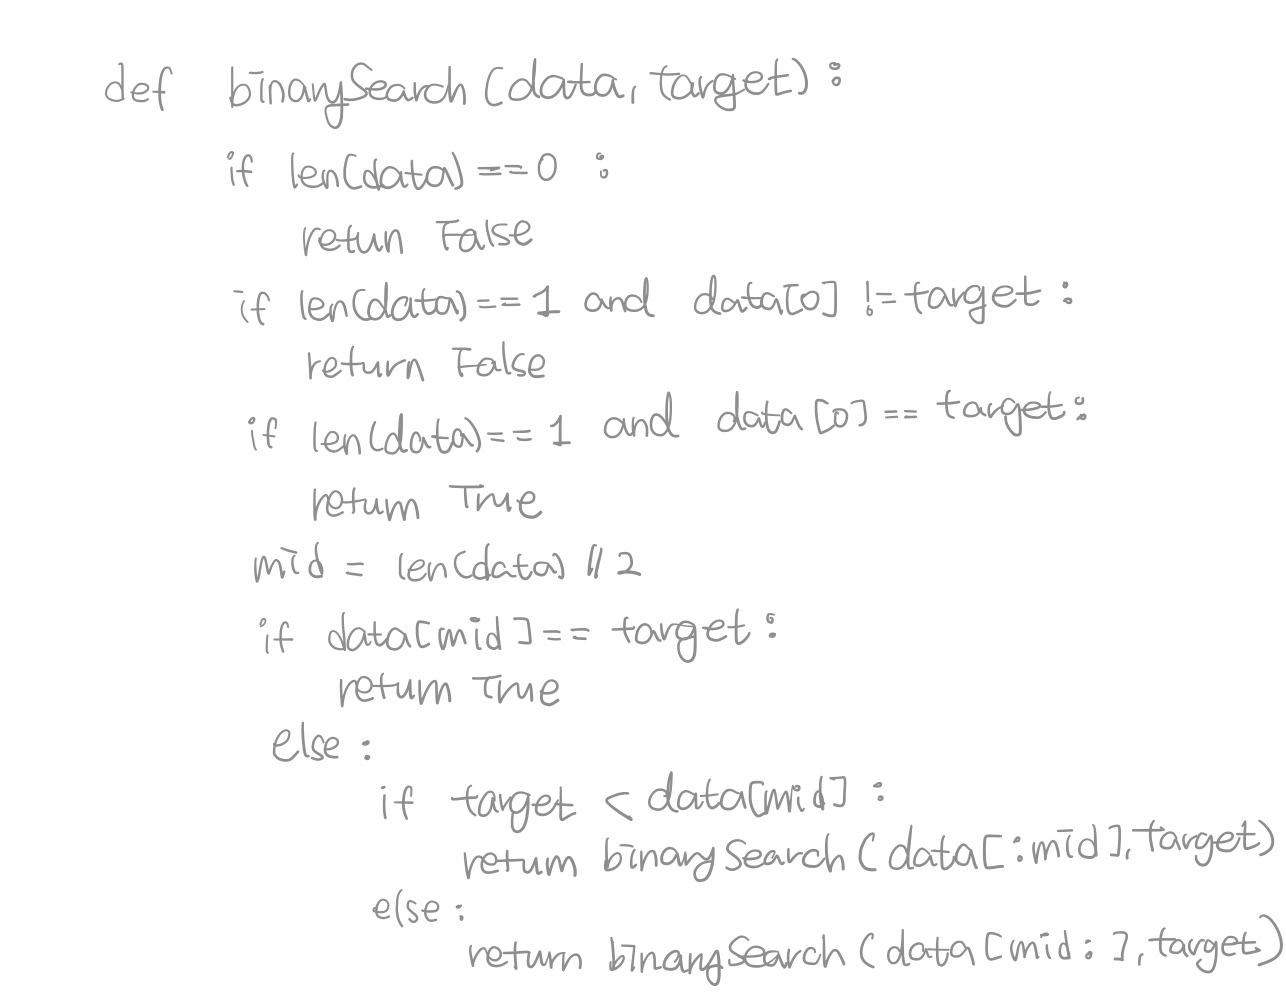 def binarySearch(data, target):
if len(data) == 0 :
retun False
if len(data) == 1 and data[0] != target :
return False
if len(data) == 1 and data[0] == target:
return True
mid = len(data) // 2
if data[mid] == target :
return True
else :
if target < data[mid] :
return binarySearch(data[:mid], target)
else :
return binarySearch(data[mid:], target)